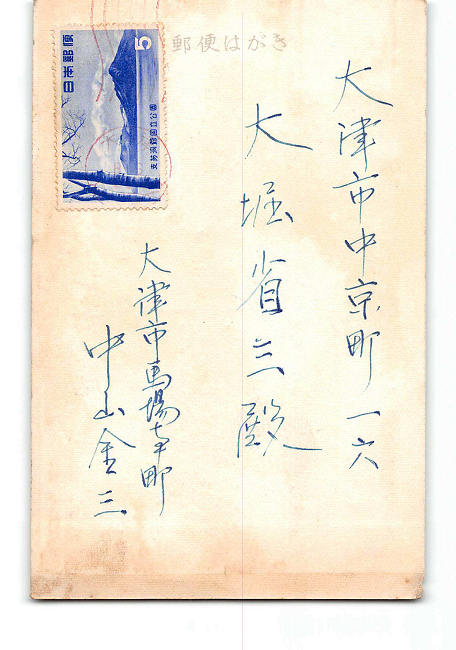 郵便はがき
日本郵便
5
支笏洞爺国立公園
大津市中京町一六
大堀省三殿
大津市馬場幸町
中山金三